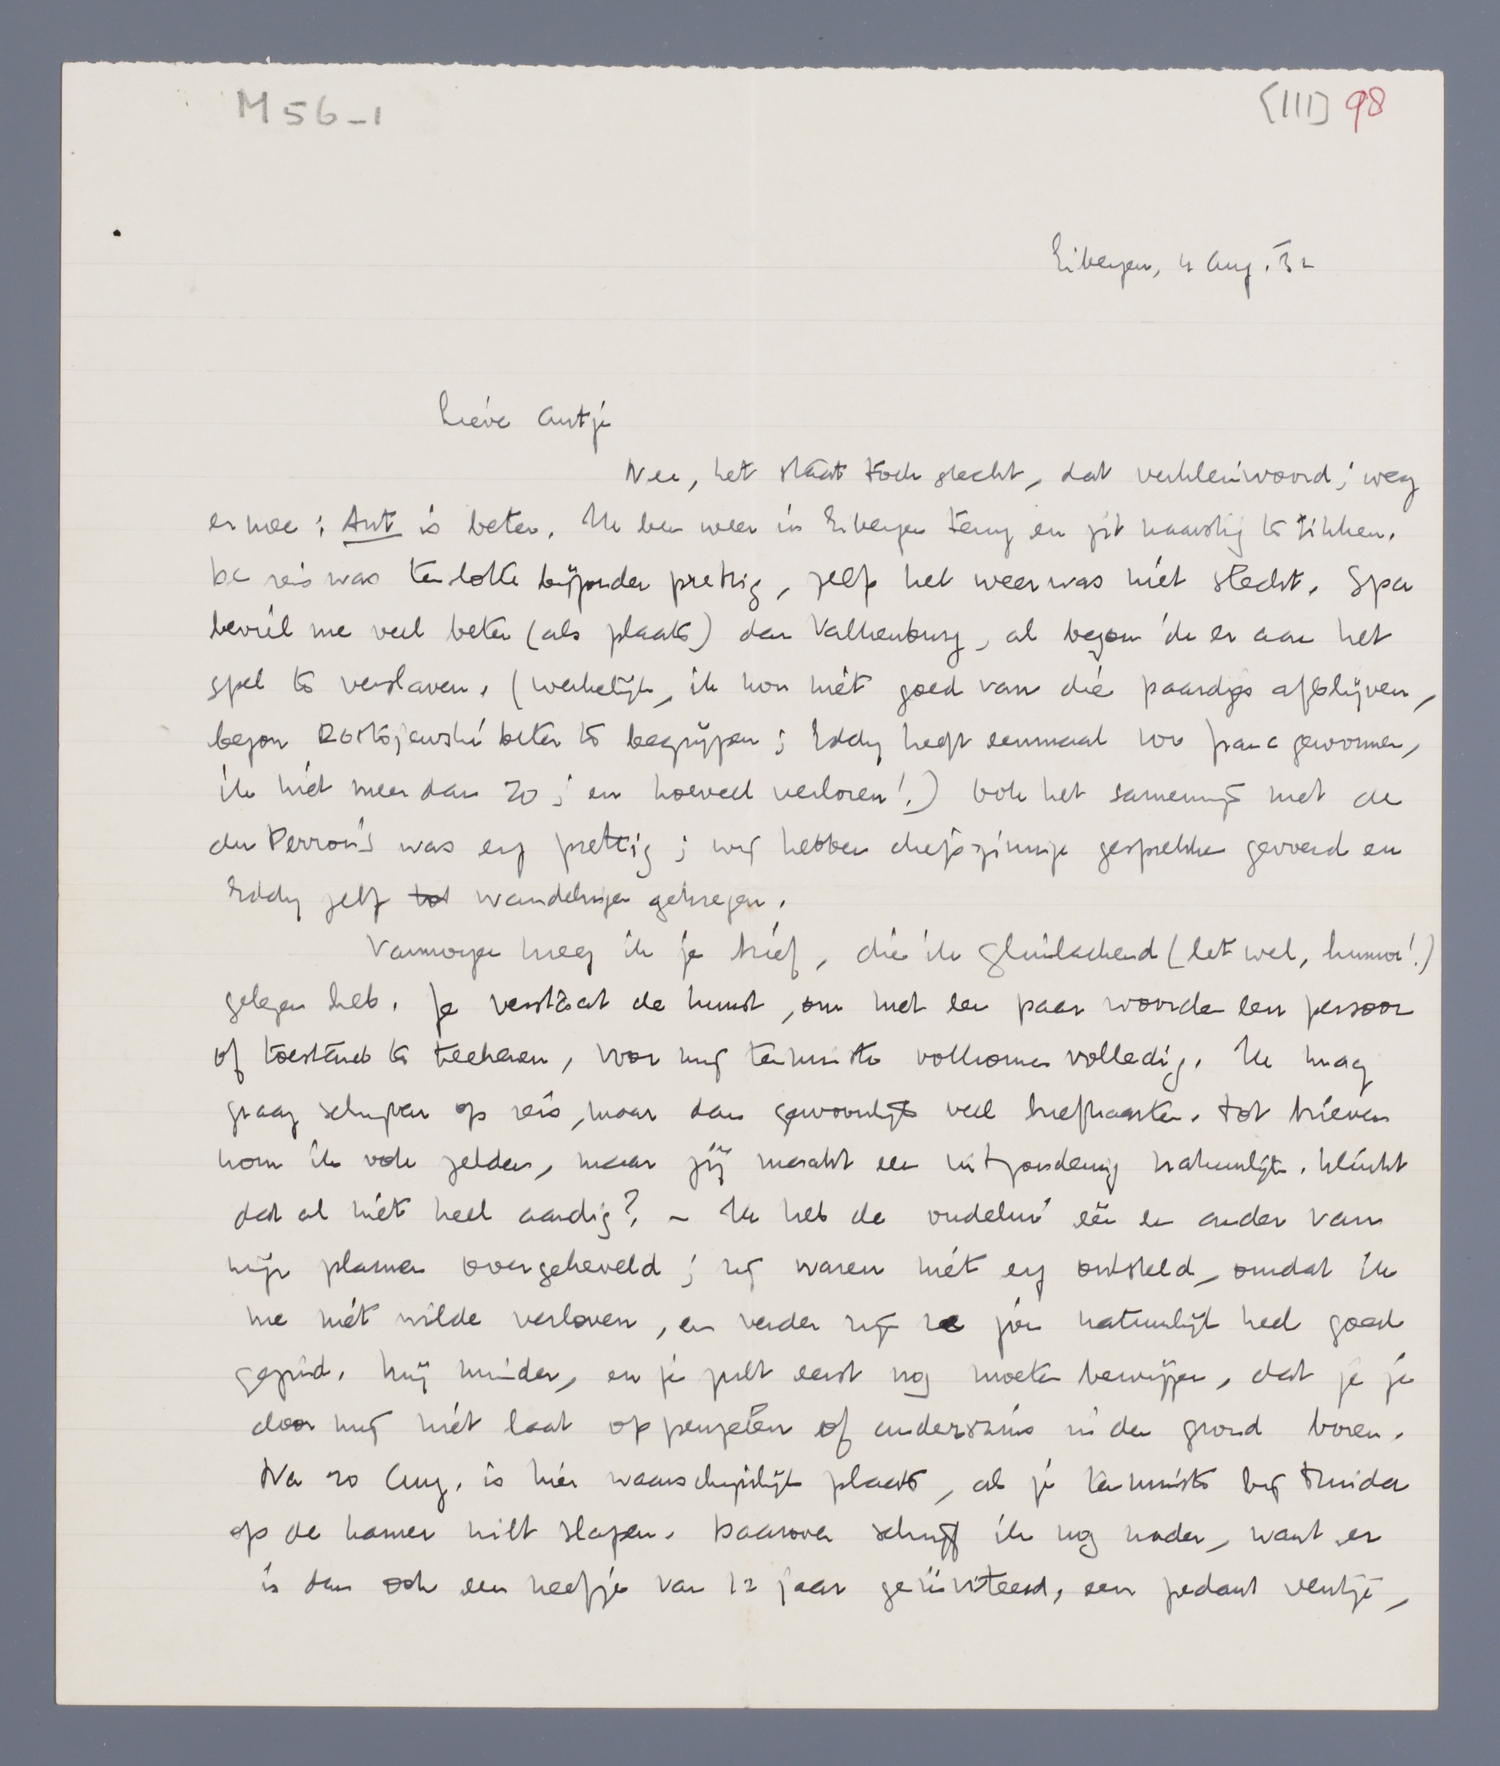 M 56-1
[III] 98
Eibergen, 4 Aug. '32
Lieve Antje
Nee, het staat toch slecht, dat verkleinwoord; weg
er mee: Ant is beter. Ik ben weer in Eibergen terug en zit naarstig te tikken.
De reis was ten slotte bijzonder prettig, zelfs het weer was niet slecht. Spa
beviel me veel beter (als plaats) dan Valkenburg, al begon ik er aan het
spel te verslaven. (Werkelijk, ik kon niet goed van die paardjes afblijven,
begon Dostojewski beter te begrijpen; Eddy heeft eenmaal 100 francs gewonnen,
ik niet meer dan 20; en hoeveel verloren!) Ook het samenzijn met de
du Perron's was erg prettig; wij hebben diepzinnige gesprekken gevoerd en
Eddy zelf tot wandelingen gekregen.
Vanmorgen kreeg ik je brief, die ik glimlachend (let wel, humor!)
gelezen heb. Je verstaat de kunst, om met een paar woorden een persoon
of toestand te teekenen, voor mij tenminste volkomen volledig. Ik mag
graag schrijven op reis, maar dan gewoonlijk veel briefkaarten. Tot brieven
kom ik ook zelden, maar jij maakt een uitzondering natuurlijk. Klinkt
dat al niet heel aardig? – Ik heb de oudelui één en ander van
mijn plannen overgeheveld; zij waren niet erg ontsteld, omdat ik
me niet wilde verloven, en verder zijn ze jou natuurlijk heel goed
gezind. Mij minder, en je zult eerst nog moeten bewijzen, dat je je
door mij niet laat oppeuzelen of anderszins in den grond boren.
Na 20 Aug. is hier waarschijnlijk plaats, als je tenminste bij Truida
op de kamer wilt slapen. Daarover schrijf ik nog nader, want er
is dan ook een neefje van 12 jaar geïnviteerd, een pedant ventje,